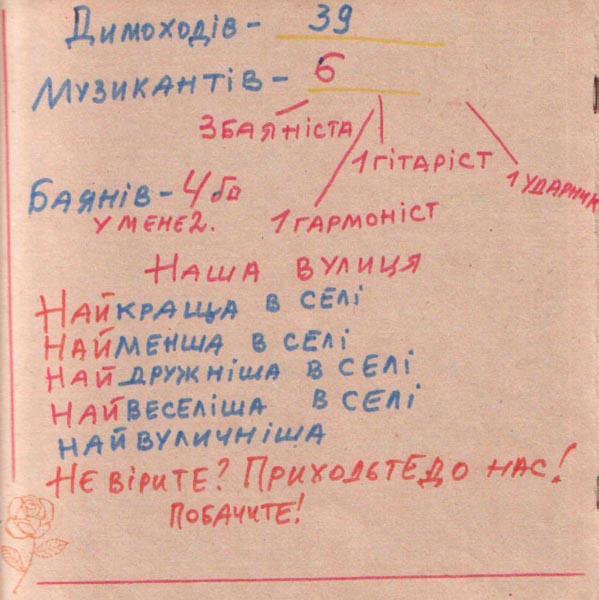 Димоходів - 39
Музикантів - 6
3 баяніста
1 гітаріст
1 ударник
Баянів - 4 бо
у мене 2.
1 гармоніст
Наша вулиця
Найкраща в селі
Найменша в селі
Найдружніша в селі
Найвеселіша в селі
Найвуличніша
Нє вірите? Приходьте до нас!
Побачите!